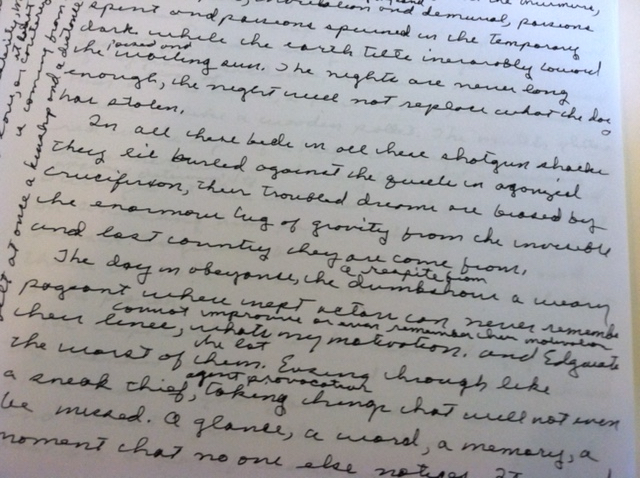 and demural, passions
spent and passions spurned in the temporary
dark while the earth tilts inexorably toward
poised and
the waiting sun. The nights are never long
enough, the night will not replace what the day
has stolen.
In all these beds in all these shotgun shacks
they lie burled against the quilts in agonized
crucifixion, their troubled dreams are biased by
the enormous tug of gravity from the invisible
and last country they are come from.
a respite from
The day in abeyance, the dumbshow a weary
pageant where inept actors can never remember
cannot improvise or even remember their motivation
their lines, whats my motivation. and Edgewater
the lot
the worst of them. Easing through like
agent provocateur
a sneak thief, taking things that will not even
be missed. A glance, a word, a memory, a
moment that no one else notices. It